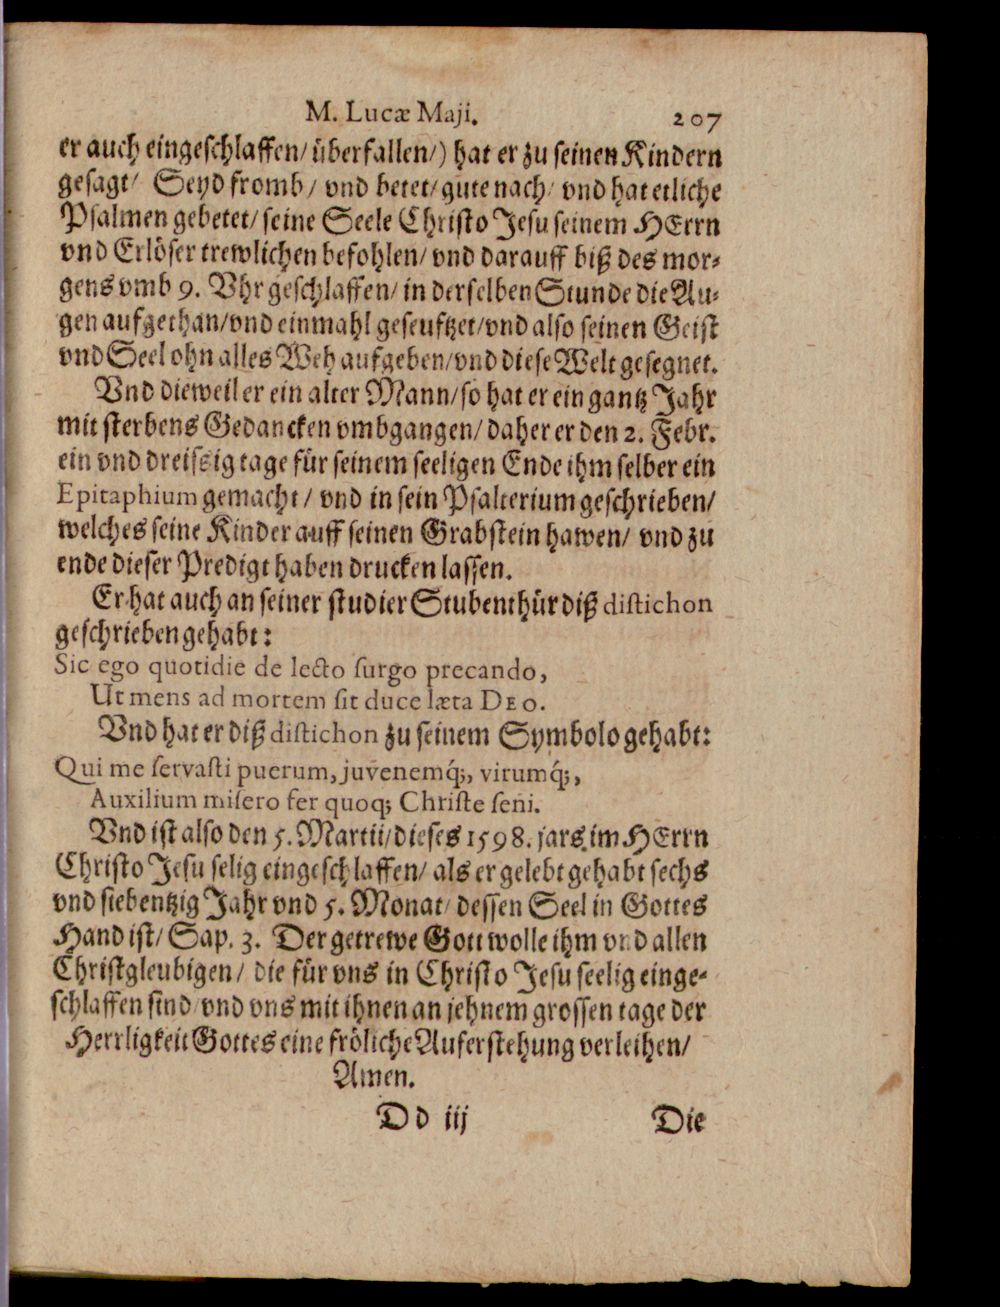 M. Lucæ Maji. 207
er auch eingeschlaffen/ überfallen/) hat er zu seinen Kindern
gesagt/ Seyd fromb/ vnd betet/ gute nach/ vnd hat etliche
Psalmen gebetet/ seine Seele Christo Jesu seinem HErrn
vnd Erlöser trewlichen befohlen/ vnd darauff biß des mor-
gens vmb 9. Vhr geschlaffen/ in derselben Stunde die Au-
gen aufgethan/ vnd einmahl geseuftzet/ vnd also seinen Geist
vnd Seel ohn alles Weh aufgeben/ vnd diese Welt gesegnet.
Vnd dieweil er ein alter Mann/ so hat er ein gantz Jahr
mit sterbens Gedancken vmbgangen/ daher er den 2. Febr.
ein vnd dreissig tage für seinem seeligen Ende ihm selber ein
Epitaphium gemacht/ vnd in sein Psalterium geschrieben/
welches seine Kinder auff seinen Grabstein hawen/ vnd zu
ende dieser Predigt haben drucken lassen.
Er hat auch an seiner studier Stubenthür diß distichon
geschrieben gehabt:
Sic ego quotidie de lecto surgo precando,
Ut mens ad mortem sit duce læta DEO.
Vnd hat er diß distichon zu seinem Symbolo gehabt:
Qui me servasti puerum, juvenemq́;, virumq́;,
Auxilium misero fer quoq; Christe seni.
Vnd ist also den 5. Martii/ dieses 1598. jars im HErrn
Christo Jesu selig eingeschlaffen/ als er gelebt gehabt sechs
vnd siebentzig Jahr vnd 5. Monat/ dessen Seel in Gottes
Hand ist/ Sap. 3. Der getrewe Gott wolle ihm vnd allen
Christgleubigen/ die für vns in Christo Jesu seelig einge-
schlaffen sind/ vnd vns mit ihnen an jehnem grossen tage der
Herrligkeit Gottes eine fröliche Auferstehung verleihen/
Amen.
Dd iij Die